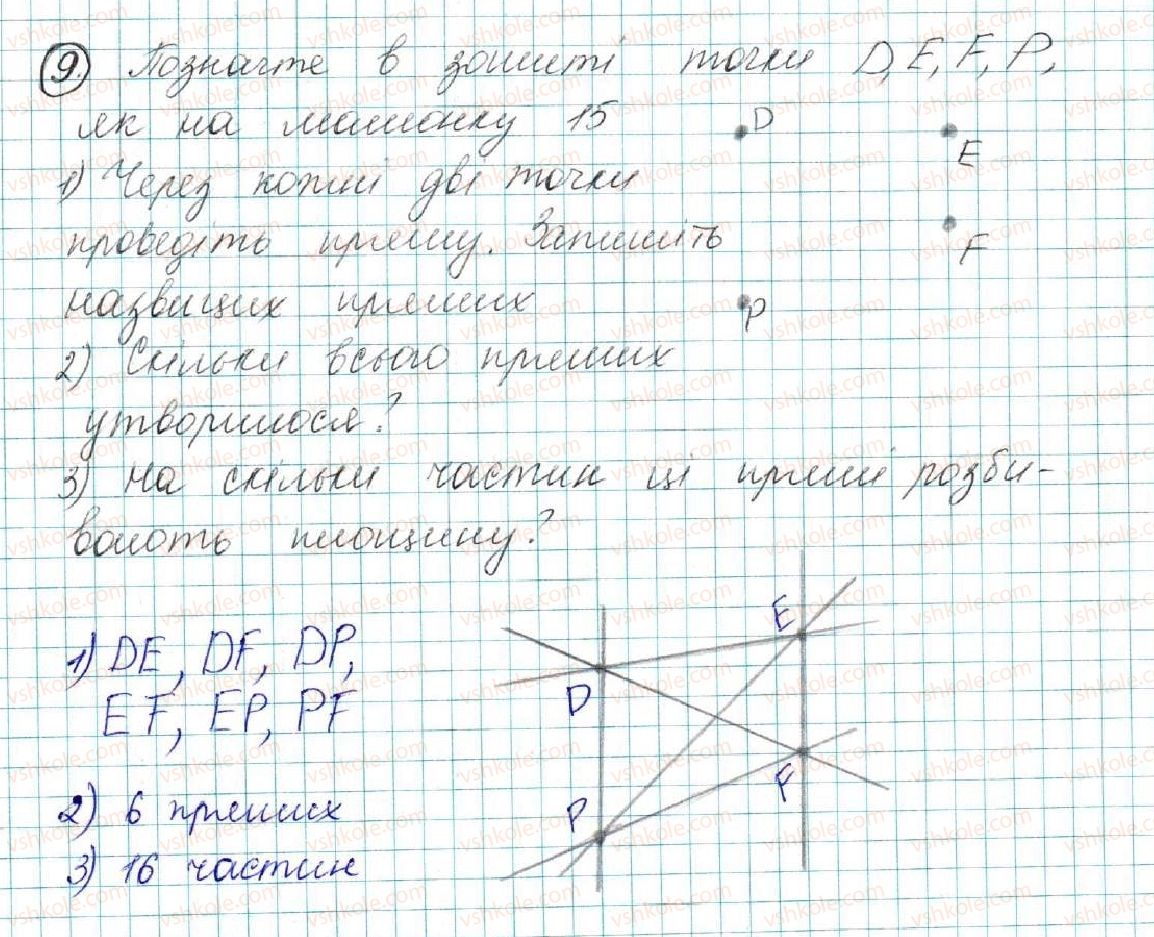 9. Позначте в зошиті точки D, E, F, P,
як на малюнку 15
D
E
1) Через кожні дві точки
проведіть пряму. Запишіть
F
назвищих прямих
P
2) Скільки всього прямих
утворилося?
3) На скільки частин ці прямі розби-
вають площину?
1) DE, DF, DP,
EF, EP, PF
2) 6 прямих
3) 16 частин
E
D
F
P
vshkole.com